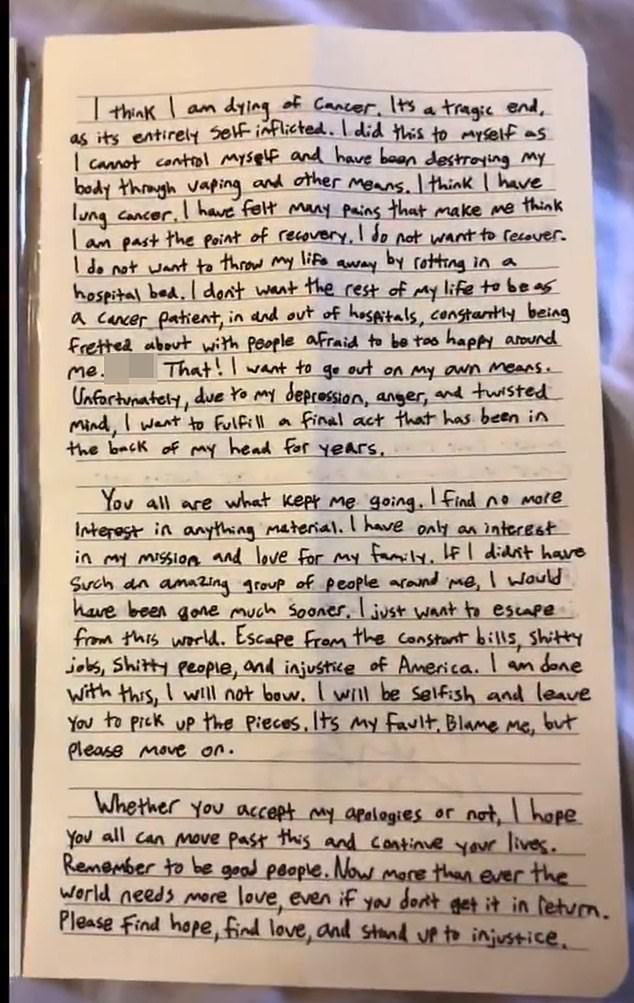 I think I am dying of cancer. Its a tragic end,
as its entirely self inflicted. I did this to myself as
I cannot control myself and have been destroying my
body through vaping and other means. I think I have
lung cancer. I have felt many pains that make me think
I am past the point of recovery. I do not want to recover.
I do not want to throw my life away by rotting in a
hospital bed. I don't want the rest of my life to be as
a cancer patient, in and out of hospitals, constantly being
fretted about with people afraid to be too happy around
me. That! I want to go out on my own means.
Unfortunately, due to my depression, anger, and twisted
mind, I want to fulfill a final act that has been in
the back of my head for years.
You all are what kept me going. I find no more
interest in anything material. I have only an interest
in my mission and love for my family. If I didn't have
such an amazing group of people around me, I would
have been gone much sooner. I just want to escape
from this world. Escape from the constant bills, shitty
jobs, shitty people, and injustice of America. I am done
with this, I will not bow. I will be selfish and leave
you to pick up the pieces. Its my fault. Blame me, but
please move on.
Whether you accept my apologies or not, I hope
you all can move past this and continue your lives.
Remember to be good people. Now more than ever the
world needs more love, even if you don't get it in return.
Please find hope, find love, and stand up to injustice.